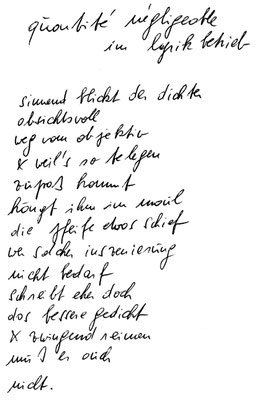 quantité négligeable
im lyrikbetrieb
sinnend blickt der dichter
absichtsvoll
weg vom objektiv
& weil's so telegen
zupaß kommt
hängt ihm im maul
die pfeife etwas schief
wer solcher inszenierung
nicht bedarf
schreibt eher doch
das bessere gedicht
& zwingend reimen
muß er auch
nicht.